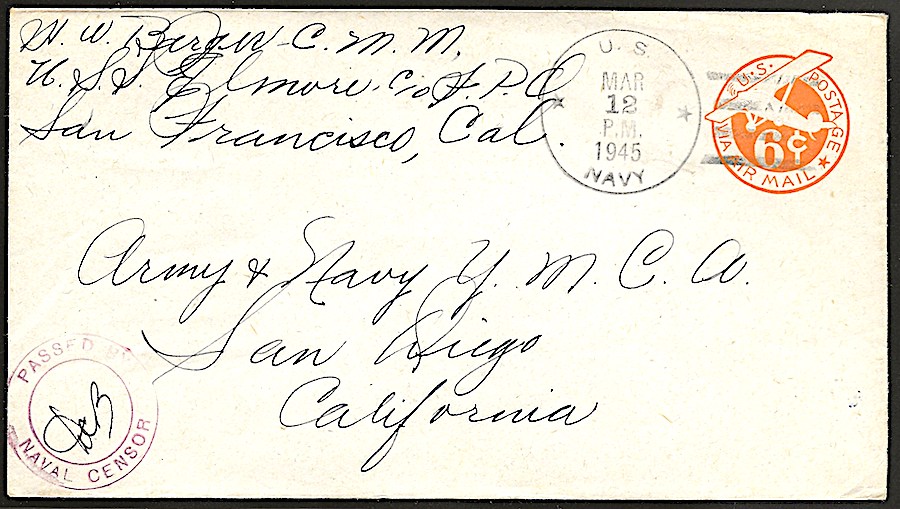 W. W. Berger - C. M. M.
U. S. S. Elmore - c/o F. P. O.
San Francisco, Cal.
U. S.
MAR
12
P.M.
1945
NAVY
U.S. POSTAGE
6¢
VIA AIR MAIL
Army & Navy Y. M. C. A.
San Diego
California
PASSED BY
NAVAL CENSOR